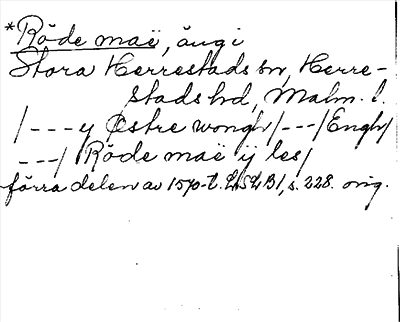 *Röde maë, äng i
Stora Herrestads sn, Herre-
stads hd, Malm. l.
/---y Østre wongh/---/Engh/
---/ Röde maë ij les/
förra delen av 1570-t. LSLB1, s. 228. orig.